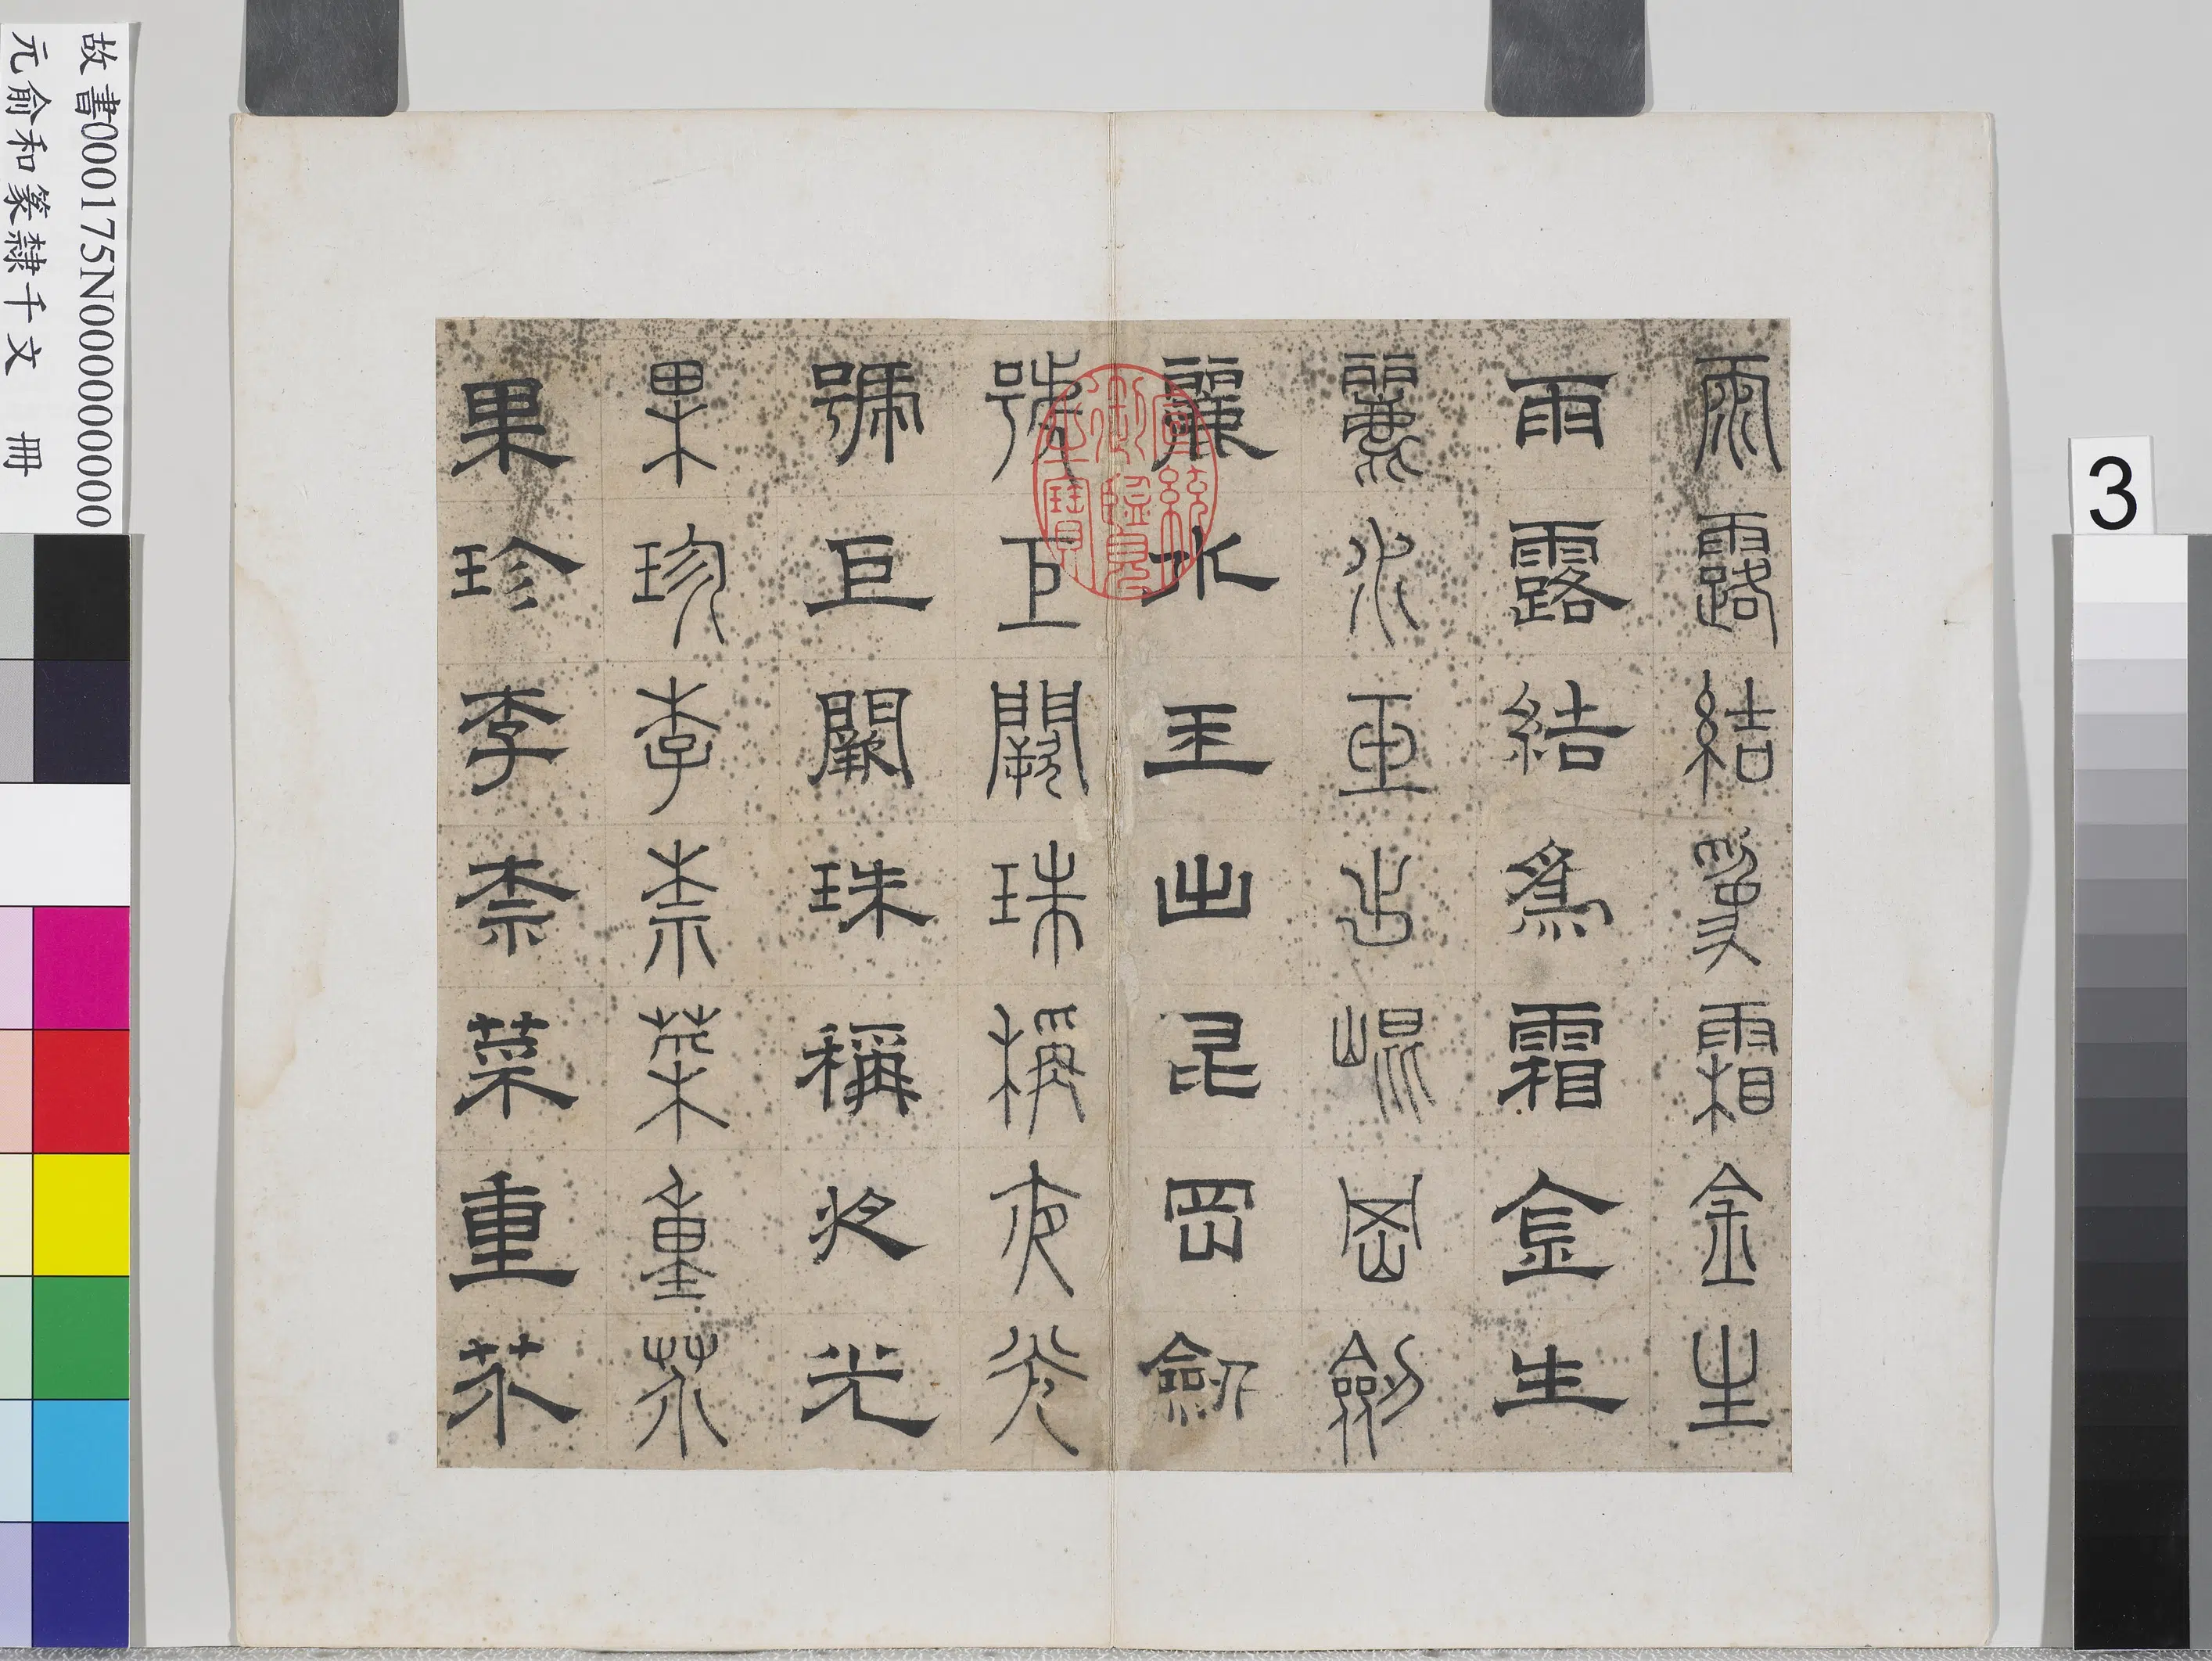 雨露結爲霜金生
雨露結爲霜金生
麗水玉出崐岡劒
麗水玉出昆岡劒
號巨闕珠稱夜光
號巨闕珠稱夜光
果珍李柰菜重芥
果珍李柰菜重芥
宣統御覽之寶
故書000175N000000000
元俞和篆隸千文 冊
3